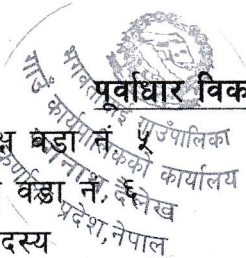 पूर्वाधार विक
क्ष वडा नं ५
वडा नं. ६
दस्य
भगवतीमाई गाउँपालिका
गाउँ कार्यपालिकाको कार्यालय
दैलेख
कर्णाली प्रदेश, नेपाल